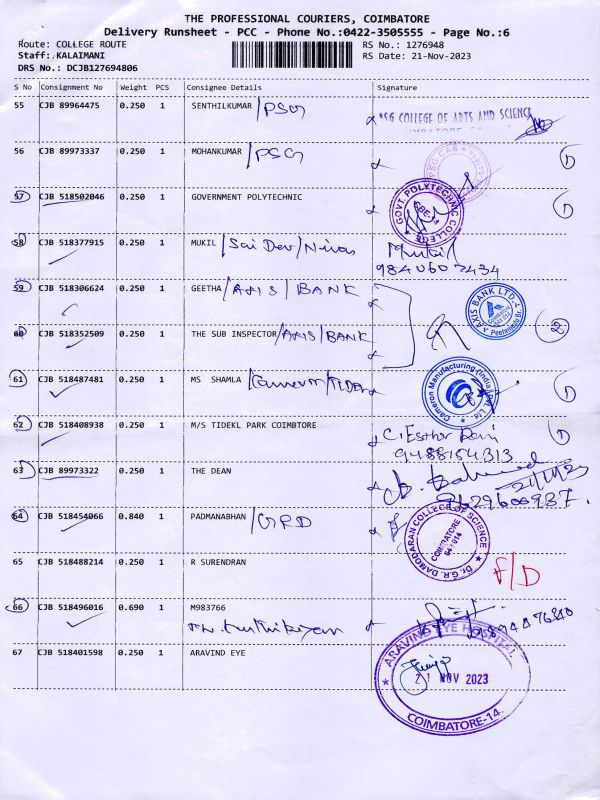 THE PROFESSIONAL COURIERS, COIMBATORE
Delivery Runsheet - PCC - Phone No.:0422-3505555 - Page No.:6
Route: COLLEGE ROUTE RS No.: 1276948
Staff: KALAIMANI RS Date: 21-Nov-2023
DRS No.: DCJB127694806
S No Consignment No Weight PCS Consignee Details Signature
55 CJB 89964475 0.250 1 SENTHILKUMAR /PSG PSG COLLEGE OF ARTS AND SCIENCE
COIMBATORE
56 CJB 89973337 0.250 1 MOHANKUMAR /PSG PSG CAS 1
57 CJB 518502046 0.250 1 GOVERNMENT POLYTECHNIC GOVT. POLYTECHNIC COLLEGE CBE-14 1
58 CJB 518377915 0.250 1 MUKIL /Sai Dev/Nivas Mukil
9840607434
59 CJB 518306624 0.250 1 GEETHA /AXIS/BANK AXIS BANK LTD. Peelamedu Br.
60 CJB 518352509 0.250 1 THE SUB INSPECTOR /AXIS/BANK 2
61 CJB 518487481 0.250 1 MS SHAMLA /Cameron/TIDEL Cameron Manufacturing (India) Pvt. Ltd. 1
62 CJB 518408938 0.250 1 M/S TIDEKL PARK COIMBTORE C. Esther Rani 1
9488154313
63 CJB 89973322 0.250 1 THE DEAN 21/11/23
8129600937.
64 CJB 518454066 0.840 1 PADMANABHAN /GRD Dr. G.R. DAMODARAN COLLEGE OF SCIENCE COIMBATORE 641 014
65 CJB 518488214 0.250 1 R SURENDRAN F/D
66 CJB 518496016 0.690 1 M983766
67 CJB 518401598 0.250 1 ARAVIND EYE ARAVIND EYE HOSPITAL
21 NOV 2023
COIMBATORE-14.